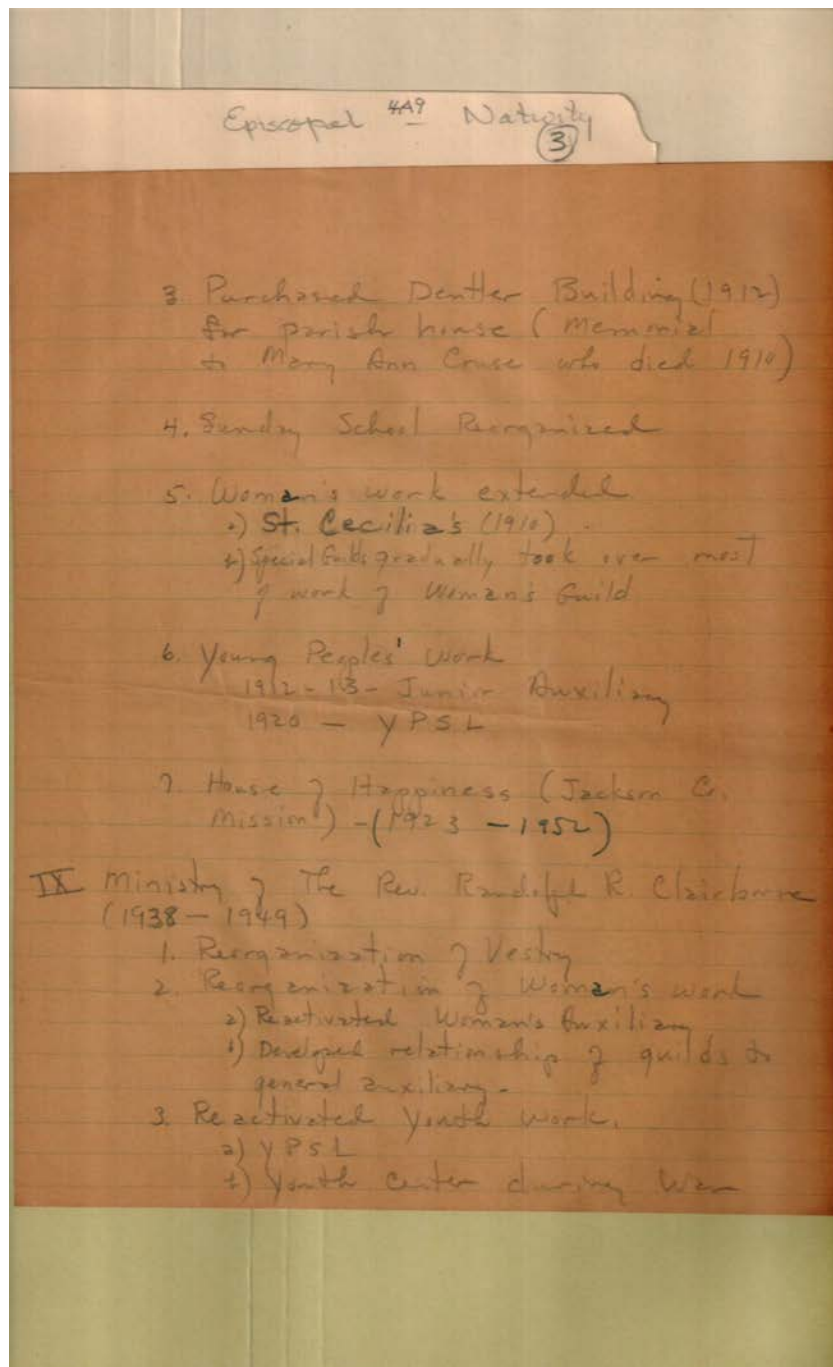 Episcopal 4A9 Nativity
3
3 Purchased Dentler Building (1912)
for parish house (Memorial
to Mary Ann Cruse who died 1910)
4. Sunday School Reorganized
5. Woman's work extended
a) St. Cecilia's (1910).
b) Special Guilds gradually took over most
of work of Woman's Guild
6. Young Peoples' Work
1912-13- Junior Auxiliary
1920 - YPSL
7. House of Happiness (Jackson Co.
Mission) - (1923 - 1952)
IX Ministry of The Rev. Randolph R. Claiborne
(1938 - 1949)
1. Reorganization of Vestry
2. Reorganization of Woman's work
a) Reactivated Woman's Auxiliary
b) Developed relationship of guilds to
general auxiliary.
3 Reactivated Youth Work.
a) YPSL
b) Youth Center during War